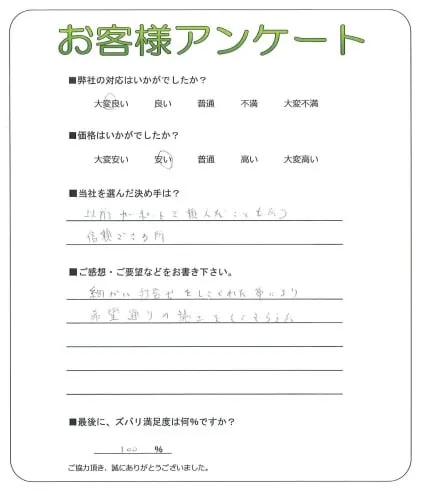 お客様アンケート
■弊社の対応はいかがでしたか?
大変良い 良い 普通 不満 大変不満
■価格はいかがでしたか?
大変安い 安い 普通 高い 大変高い
■当社を選んだ決め手は?
以前カーポートで頼んだことも
信頼できる所
■ご感想・ご要望などをお書き下さい。
細かい打合せをしてくれた事により
希望通りの施工をしてもらえた
■最後に、ズバリ満足度は何%ですか?
100 %
ご協力頂き、誠にありがとうございました。